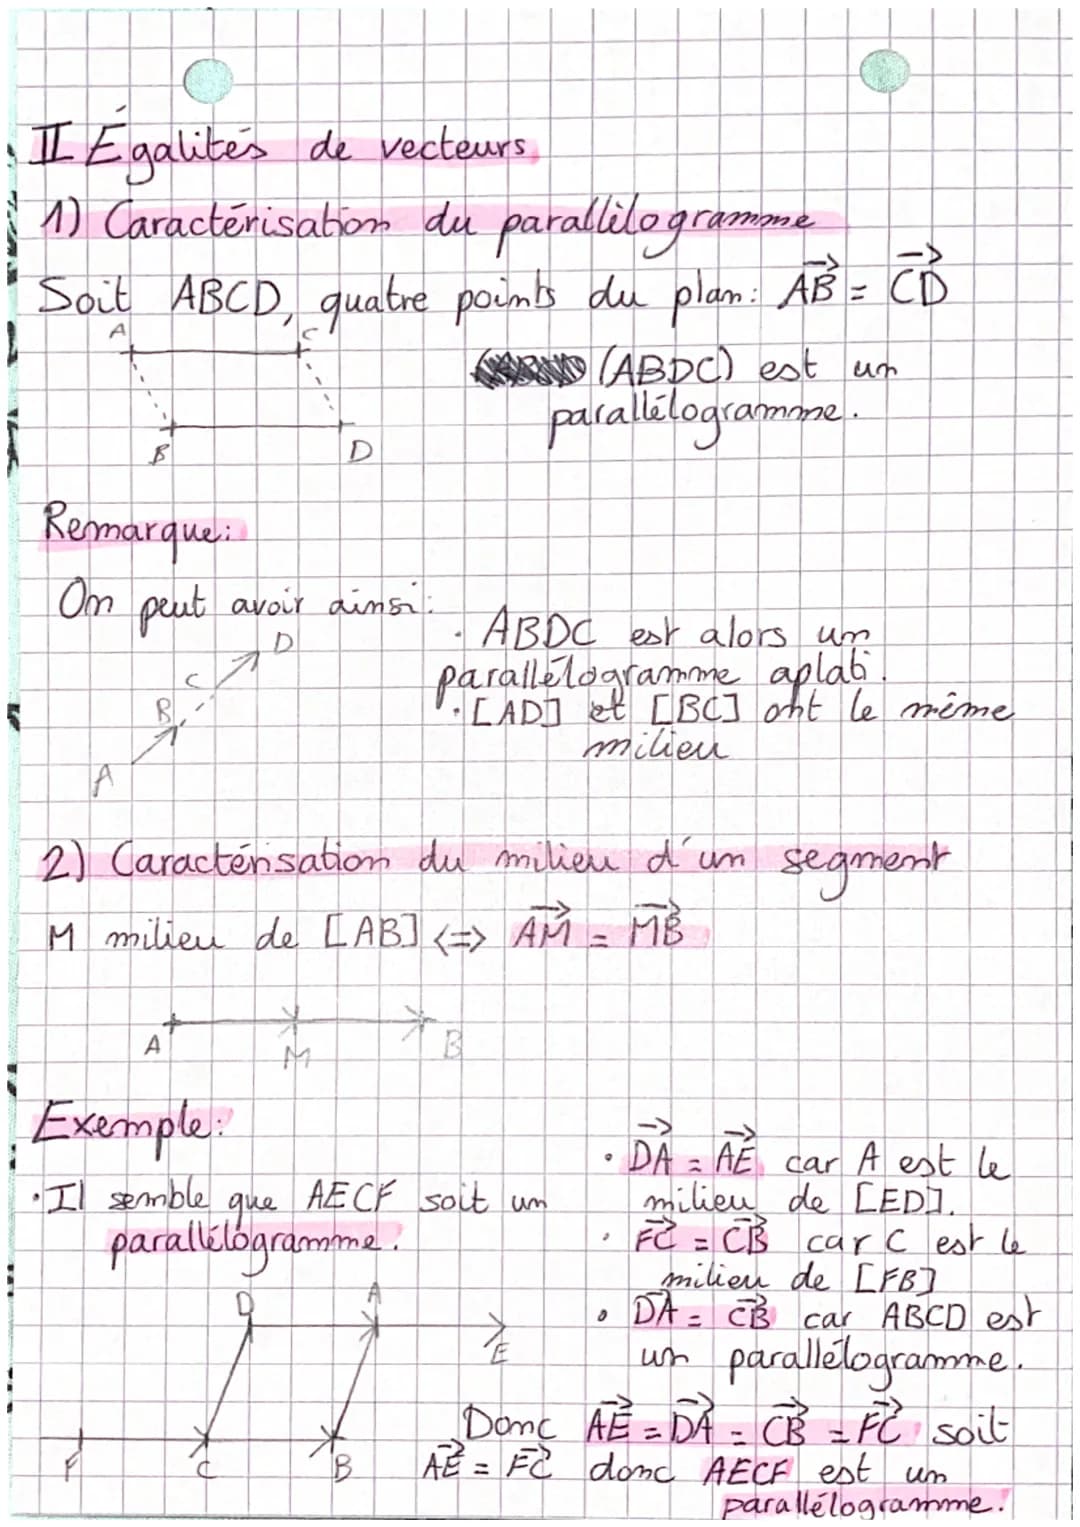 II Égalités de vecteurs
1) Caractérisation du parallélogramme
Soit ABCD, quatre points du plan: AB⃗ = CD⃗
A C
(ABDC) est un
parallélogramme.
B D
Remarque:
On peut avoir ainsi:
D
· ABDC est alors un
parallélogramme aplati.
C
B
· [AD] et [BC] ont le même
milieu
A
2) Caractérisation du milieu d'un segment
M milieu de [AB] <=> AM⃗ = MB⃗
A M B
Exemple:
· Il semble que AECF soit un
parallélogramme.
· DA⃗ = AE⃗ car A est le
milieu de [ED].
· FC⃗ = CB⃗ car C est le
milieu de [FB]
· DA⃗ = CB⃗ car ABCD est
un parallélogramme.
D A
E
F C B
Donc AE⃗ = DA⃗ = CB⃗ = FC⃗ soit
AE⃗ = FC⃗ donc AECF est un
parallélogramme.